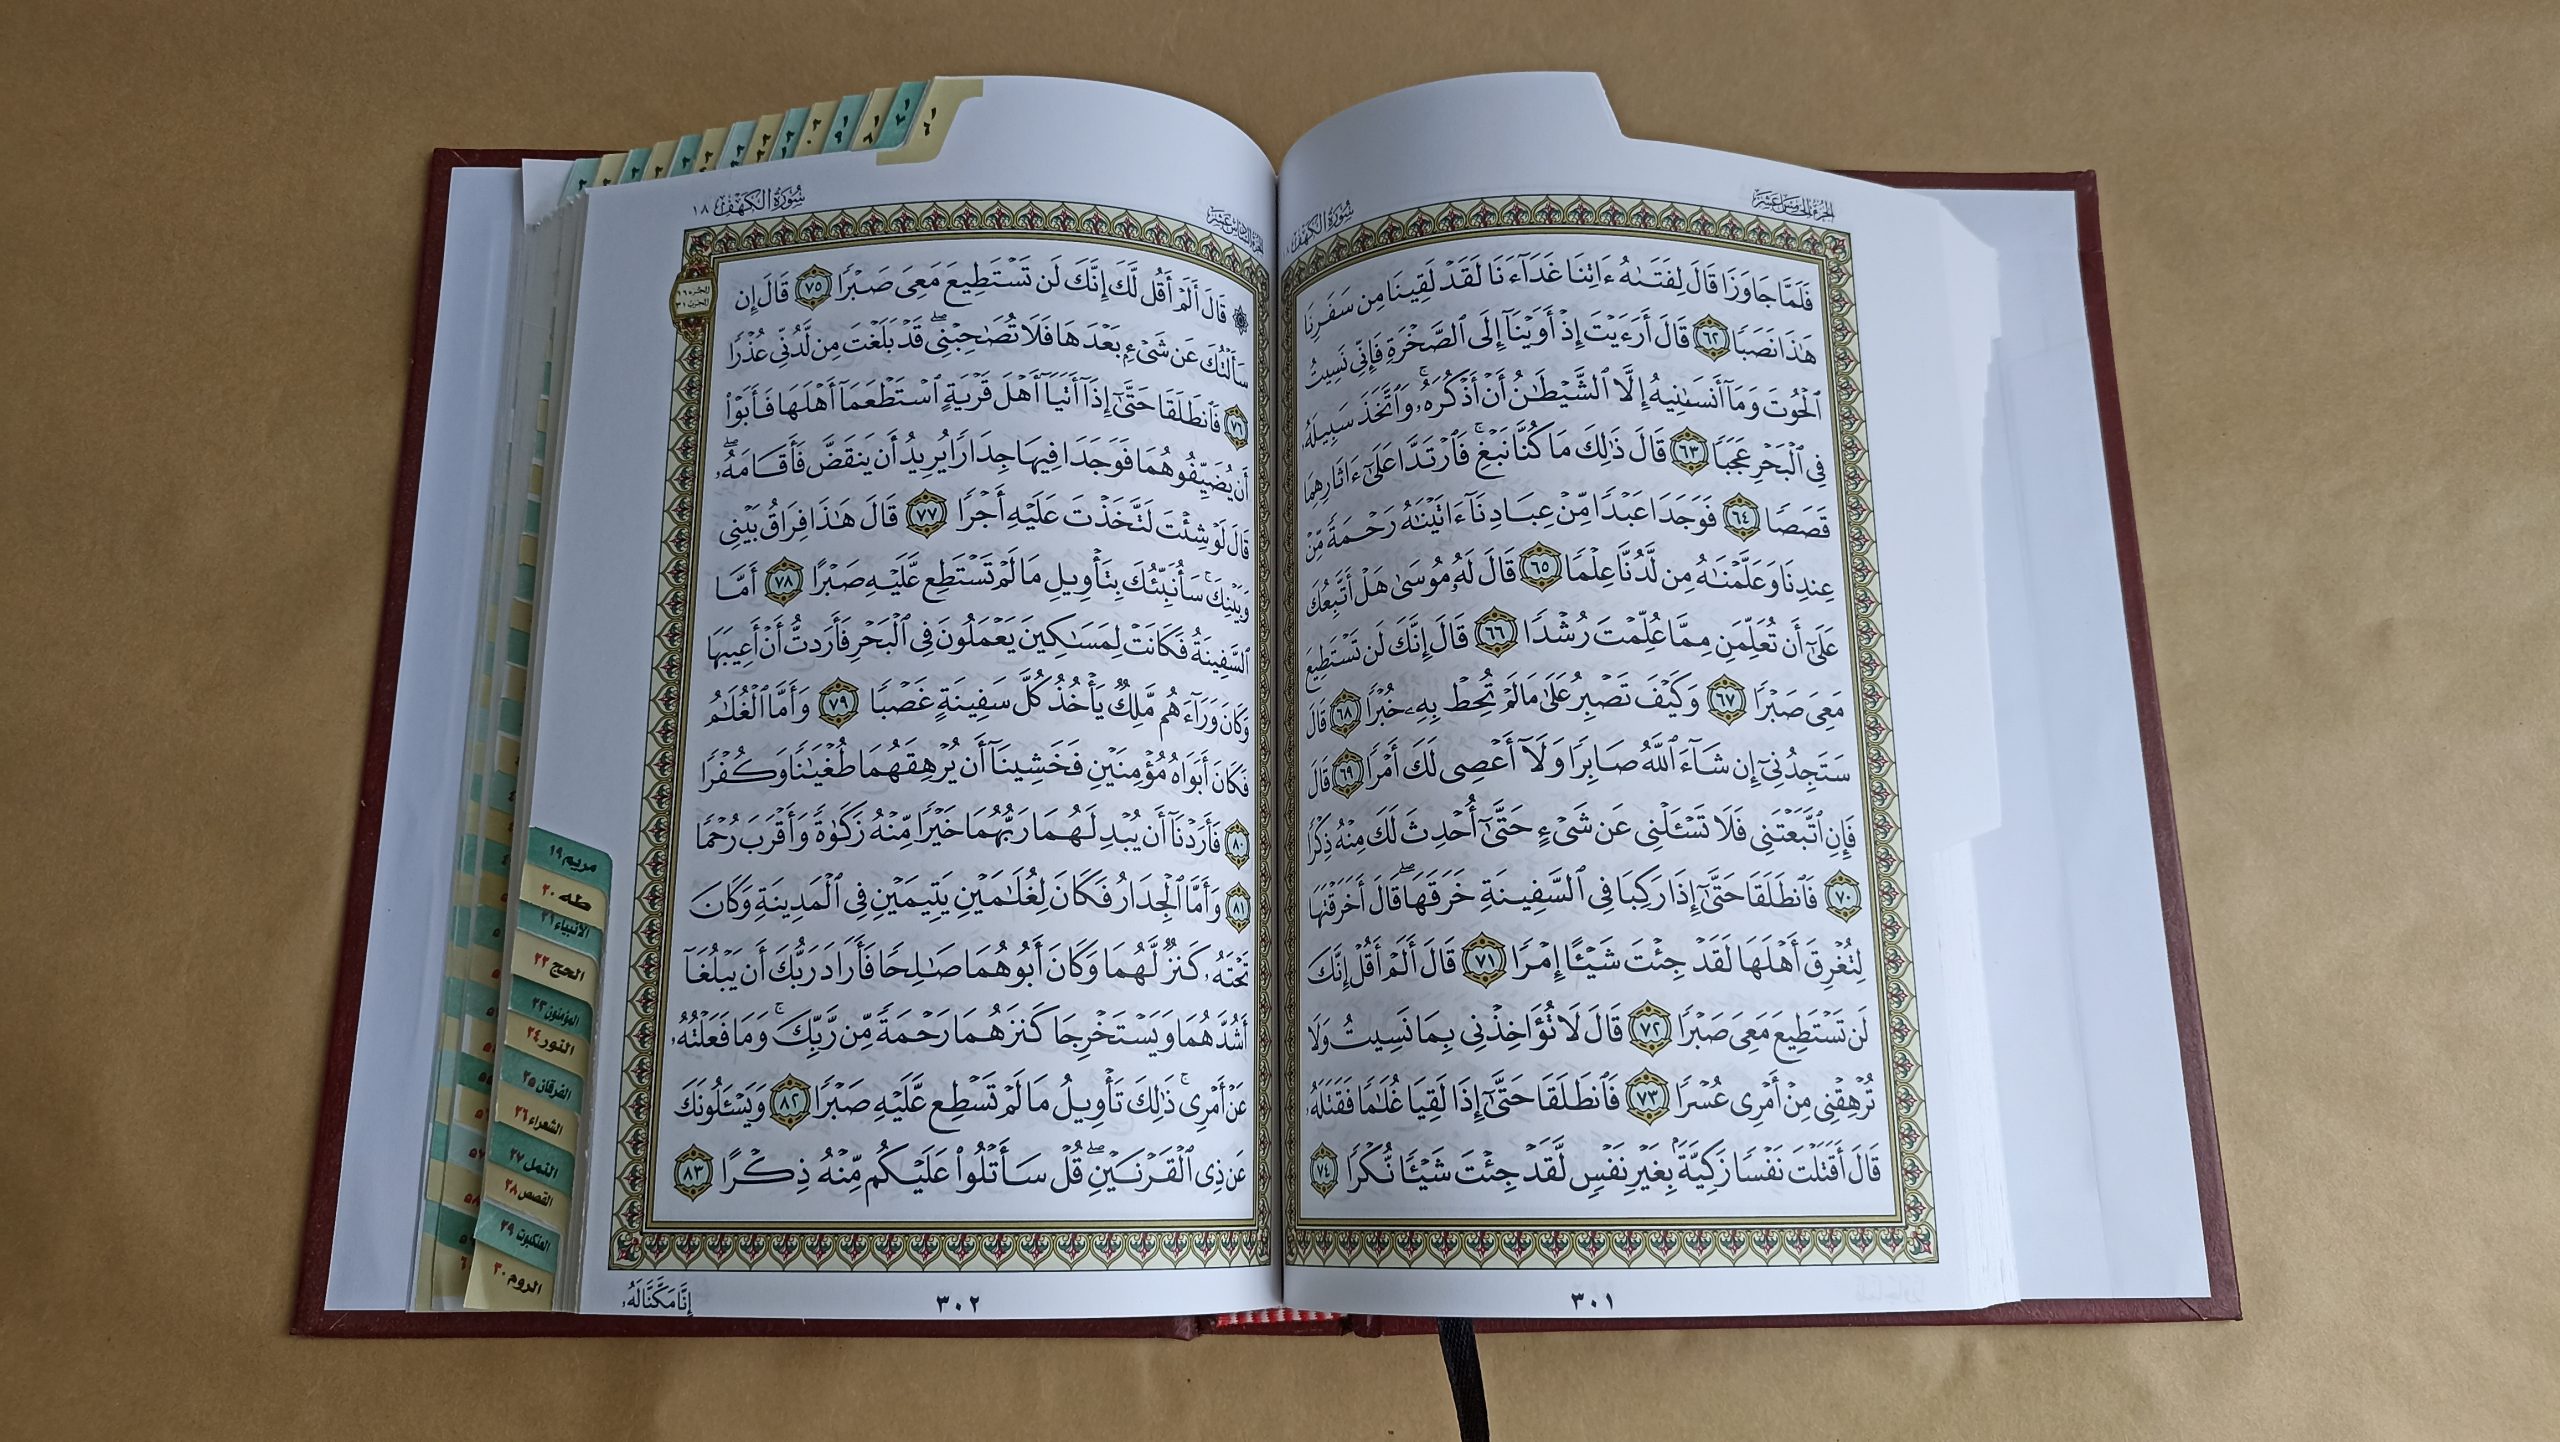 الجزء الخامس عشر
سورة الكهف
فَلَمَّا جَاوَزَا قَالَ لِفَتَىٰهُ ءَاتِنَا غَدَآءَنَا لَقَدْ لَقِينَا مِن سَفَرِنَا
هَٰذَا نَصَبًا ٦٢ قَالَ أَرَءَيْتَ إِذْ أَوَيْنَآ إِلَى ٱلصَّخْرَةِ فَإِنِّى نَسِيتُ
ٱلْحُوتَ وَمَآ أَنسَىٰنِيهُ إِلَّا ٱلشَّيْطَٰنُ أَنْ أَذْكُرَهُۥ ۚ وَٱتَّخَذَ سَبِيلَهُۥ
فِى ٱلْبَحْرِ عَجَبًا ٦٣ قَالَ ذَٰلِكَ مَا كُنَّا نَبْغِ ۚ فَٱرْتَدَّا عَلَىٰٓ ءَاثَارِهِمَا
قَصَصًا ٦٤ فَوَجَدَا عَبْدًا مِّنْ عِبَادِنَآ ءَاتَيْنَٰهُ رَحْمَةً مِّنْ
عِندِنَا وَعَلَّمْنَٰهُ مِن لَّدُنَّا عِلْمًا ٦٥ قَالَ لَهُۥ مُوسَىٰ هَلْ أَتَّبِعُكَ
عَلَىٰٓ أَن تُعَلِّمَنِ مِمَّا عُلِّمْتَ رُشْدًا ٦٦ قَالَ إِنَّكَ لَن تَسْتَطِيعَ
مَعِىَ صَبْرًا ٦٧ وَكَيْفَ تَصْبِرُ عَلَىٰ مَا لَمْ تُحِطْ بِهِۦ خُبْرًا ٦٨ قَالَ
سَتَجِدُنِىٓ إِن شَآءَ ٱللَّهُ صَابِرًا وَلَآ أَعْصِى لَكَ أَمْرًا ٦٩ قَالَ
فَإِنِ ٱتَّبَعْتَنِى فَلَا تَسْـَٔلْنِى عَن شَىْءٍ حَتَّىٰٓ أُحْدِثَ لَكَ مِنْهُ ذِكْرًا
٧٠ فَٱنطَلَقَا حَتَّىٰٓ إِذَا رَكِبَا فِى ٱلسَّفِينَةِ خَرَقَهَا ۖ قَالَ أَخَرَقْتَهَا
لِتُغْرِقَ أَهْلَهَا لَقَدْ جِئْتَ شَيْـًٔا إِمْرًا ٧١ قَالَ أَلَمْ أَقُلْ إِنَّكَ
لَن تَسْتَطِيعَ مَعِىَ صَبْرًا ٧٢ قَالَ لَا تُؤَاخِذْنِى بِمَا نَسِيتُ وَلَا
تُرْهِقْنِى مِنْ أَمْرِى عُسْرًا ٧٣ فَٱنطَلَقَا حَتَّىٰٓ إِذَا لَقِيَا غُلَٰمًا فَقَتَلَهُۥ
قَالَ أَقَتَلْتَ نَفْسًا زَكِيَّةًۢ بِغَيْرِ نَفْسٍ لَّقَدْ جِئْتَ شَيْـًٔا نُّكْرًا ٧٤
٣٠١
الجزء السادس عشر
سورة الكهف ١٨
الجزء ١٦
الحزب ٣١
۞ قَالَ أَلَمْ أَقُل لَّكَ إِنَّكَ لَن تَسْتَطِيعَ مَعِىَ صَبْرًا ٧٥ قَالَ إِن
سَأَلْتُكَ عَن شَىْءٍۭ بَعْدَهَا فَلَا تُصَٰحِبْنِى ۖ قَدْ بَلَغْتَ مِن لَّدُنِّى عُذْرًا
٧٦ فَٱنطَلَقَا حَتَّىٰٓ إِذَآ أَتَيَآ أَهْلَ قَرْيَةٍ ٱسْتَطْعَمَآ أَهْلَهَا فَأَبَوْا۟
أَن يُضَيِّفُوهُمَا فَوَجَدَا فِيهَا جِدَارًا يُرِيدُ أَن يَنقَضَّ فَأَقَامَهُۥ ۖ
قَالَ لَوْ شِئْتَ لَتَّخَذْتَ عَلَيْهِ أَجْرًا ٧٧ قَالَ هَٰذَا فِرَاقُ بَيْنِى
وَبَيْنِكَ ۚ سَأُنَبِّئُكَ بِتَأْوِيلِ مَا لَمْ تَسْتَطِع عَّلَيْهِ صَبْرًا ٧٨ أَمَّا
ٱلسَّفِينَةُ فَكَانَتْ لِمَسَٰكِينَ يَعْمَلُونَ فِى ٱلْبَحْرِ فَأَرَدتُّ أَنْ أَعِيبَهَا
وَكَانَ وَرَآءَهُم مَّلِكٌ يَأْخُذُ كُلَّ سَفِينَةٍ غَصْبًا ٧٩ وَأَمَّا ٱلْغُلَٰمُ
فَكَانَ أَبَوَاهُ مُؤْمِنَيْنِ فَخَشِينَآ أَن يُرْهِقَهُمَا طُغْيَٰنًا وَكُفْرًا
٨٠ فَأَرَدْنَآ أَن يُبْدِلَهُمَا رَبُّهُمَا خَيْرًا مِّنْهُ زَكَوٰةً وَأَقْرَبَ رُحْمًا
٨١ وَأَمَّا ٱلْجِدَارُ فَكَانَ لِغُلَٰمَيْنِ يَتِيمَيْنِ فِى ٱلْمَدِينَةِ وَكَانَ
تَحْتَهُۥ كَنزٌ لَّهُمَا وَكَانَ أَبُوهُمَا صَٰلِحًا فَأَرَادَ رَبُّكَ أَن يَبْلُغَآ
أَشُدَّهُمَا وَيَسْتَخْرِجَا كَنزَهُمَا رَحْمَةً مِّن رَّبِّكَ ۚ وَمَا فَعَلْتُهُۥ
عَنْ أَمْرِى ۚ ذَٰلِكَ تَأْوِيلُ مَا لَمْ تَسْطِع عَّلَيْهِ صَبْرًا ٨٢ وَيَسْـَٔلُونَكَ
عَن ذِى ٱلْقَرْنَيْنِ ۖ قُلْ سَأَتْلُوا۟ عَلَيْكُم مِّنْهُ ذِكْرًا ٨٣
٣٠٢
إِنَّا مَكَّنَّا لَهُۥ
مريم ١٩
طه ٢٠
الأنبياء ٢١
الحج ٢٢
المؤمنون ٢٣
النور ٢٤
الفرقان ٢٥
الشعراء ٢٦
النمل ٢٧
القصص ٢٨
العنكبوت ٢٩
الروم ٣٠